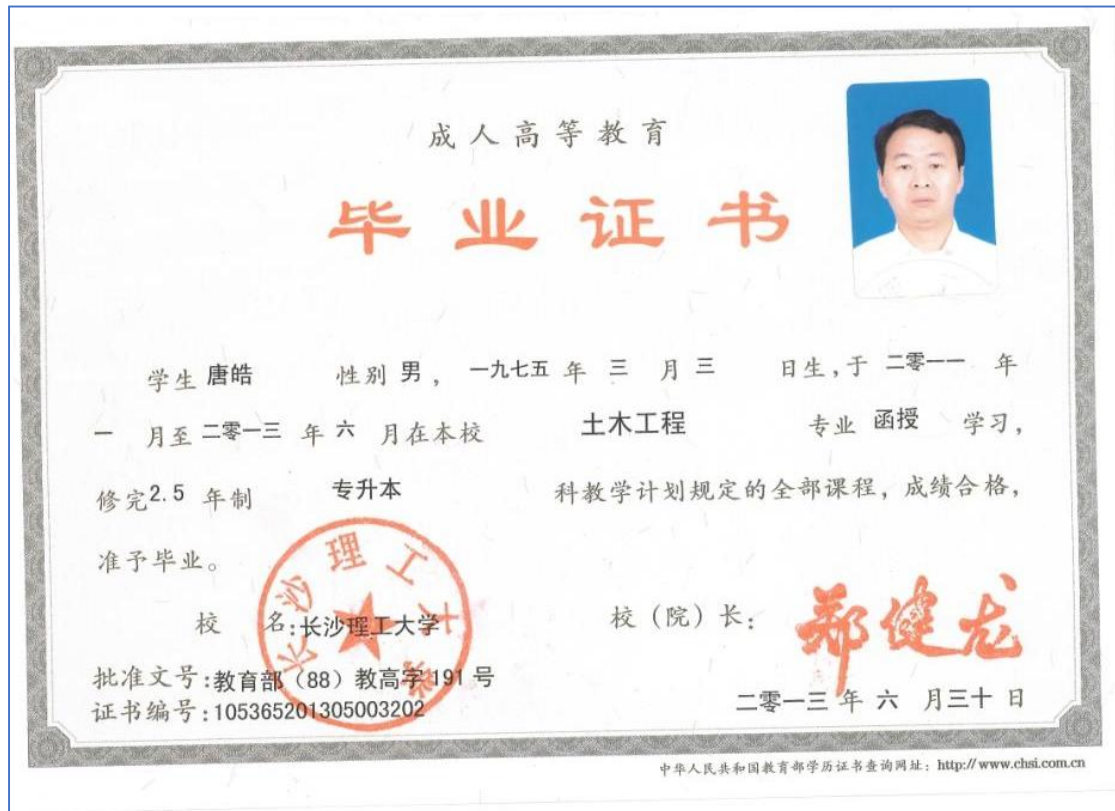 成人高等教育
毕业证书
学生 唐皓 性别 男， 一九七五 年 三 月 三 日生，于 二零一一 年
一 月至 二零一三 年 六 月在本校 土木工程 专业 函授 学习，
修完2.5 年制 专升本 科教学计划规定的全部课程，成绩合格，
准予毕业。
长沙理工大学
校 名:长沙理工大学 校（院）长： 郑健龙
批准文号:教育部（88）教高字 191 号
证书编号:105365201305003202 二零一三 年 六 月三十 日
中华人民共和国教育部学历证书查询网址：http://www.chsi.com.cn